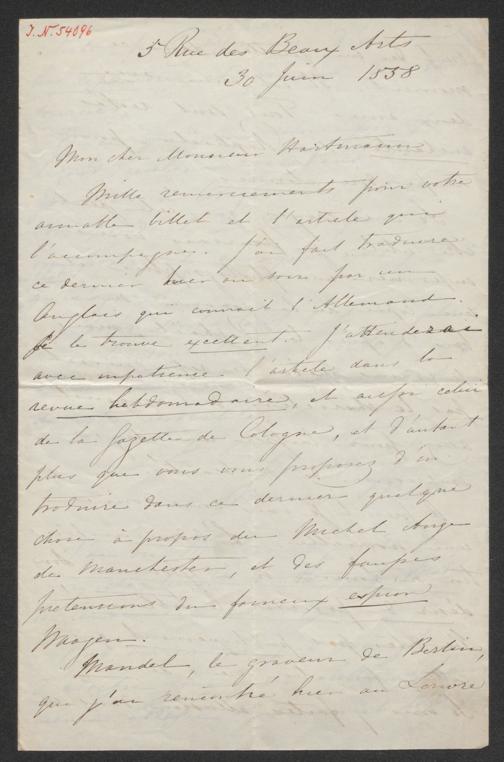 J. N. 54096
5 Rue des Beaux Arts
30 Juin 1858
Mon cher Monsieur Hartmann
Mille remerciements pour votre
aimable billet et l'article qui
l'accompagne. J'ai fait traduire
ce dernier hier au soir par un
Anglais qui connait l'Allemand.
Je le trouve excellent. J'attenderai
avec impatience l'article dans la
revue hebdomadaire, et aussi celui
de la Gazette de Cologne, et d'autant
plus que vous vous proposez d'in
troduire dans ce dernier quelque
chose à propos du Michel Ange
de Manchester, et des fausses
pretensions du fameux espion
Waagen.
Mandel, le graveur de Berlin,
que j'ai rencontré hier au Louvre